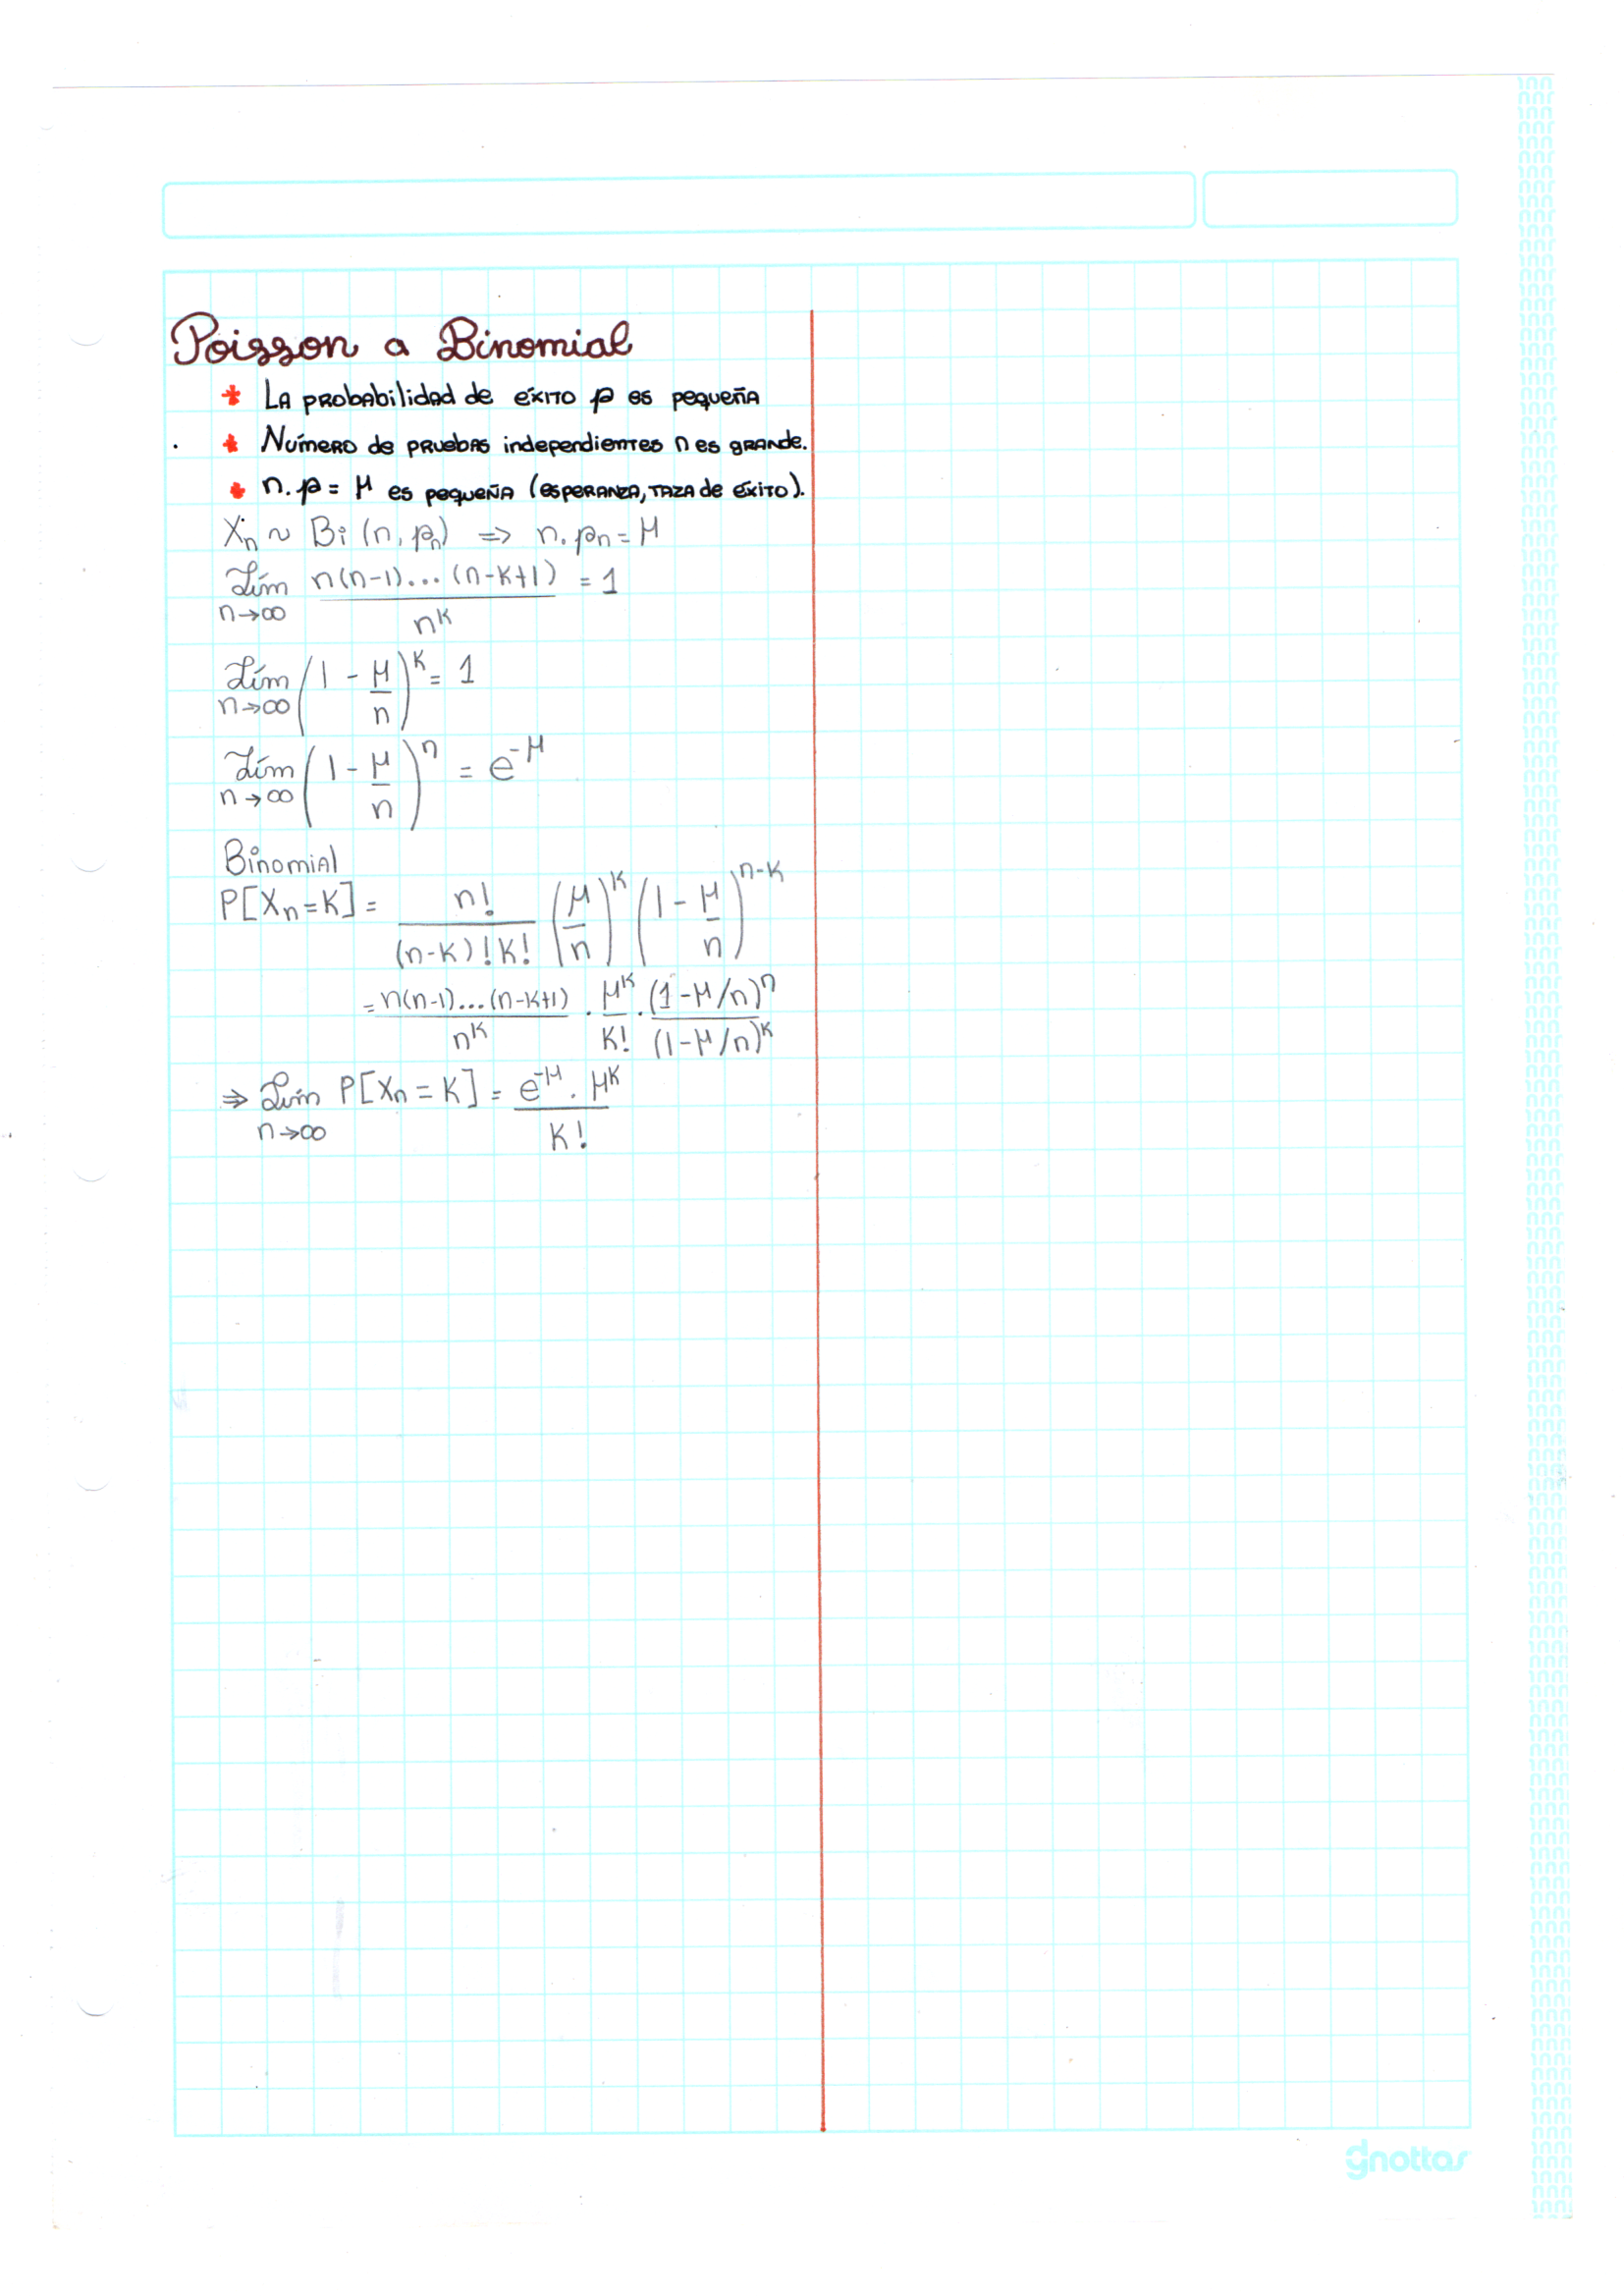 Poisson a Binomial
* La probabilidad de éxito p es pequeña
* Número de pruebas independientes n es grande.
* n.p = μ es pequeña (esperanza, taza de éxito).
Xn ~ Bi (n, pn) ⇒ n.pn = μ
Lím n→∞ n(n-1)...(n-k+1) / n^k = 1
Lím n→∞ (1 - μ/n)^k = 1
Lím n→∞ (1 - μ/n)^n = e^-μ
Binomial
P[Xn = k] = n! / (n-k)!k! (μ/n)^k (1 - μ/n)^n-k
= n(n-1)...(n-k+1) / n^k . μ^k / k! . (1-μ/n)^n / (1-μ/n)^k
⇒ Lím n→∞ P[Xn = k] = e^-μ . μ^k / k!
gnottas